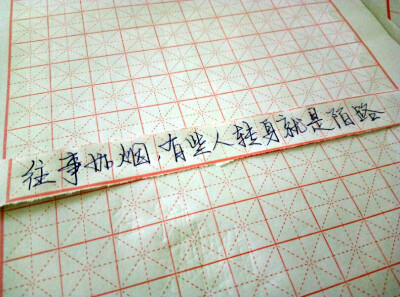 往事如烟，有些人转身就是陌路